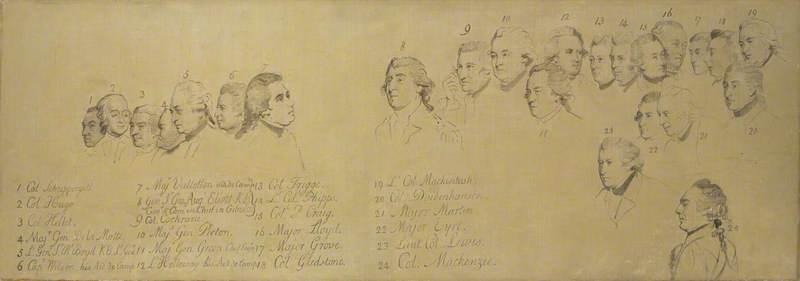 1 2 3 4 5 6 7 8 9 10 11 12 13 14 15 16 17 18 19 20 21 22 23 24
1 Col Schleppengill
2 Col Hugo
3 Col Helet
4 Majr Genl De La Motte
5 Lt Genl Sr Rt Boyd K.B. Lt Govr
6 Capt Wilson his Aid de Camp
7 Majr Vallotton aid de Camp
8 Genl Sr Geo Aug Eliott K.B.
Govr & Com in Chief in Gibralr
9 Col Cochrane
10 Majr Gen Picton.
11 Maj Gen Green Chief Engr
12 Lt Holloway his Aid de Camp
13 Col Trigge.
14 Lt Col Phipps
15 Col Craig.
16 Major Lloyd.
17 Major Grove.
18 Col Gledstone.
19 Lt Col Mackintosh.
20 Col Dachenhausen.
21 Major Martin
22 Major Eyre.
23 Lieut Col Lewis.
24 Col. Mackenzie.